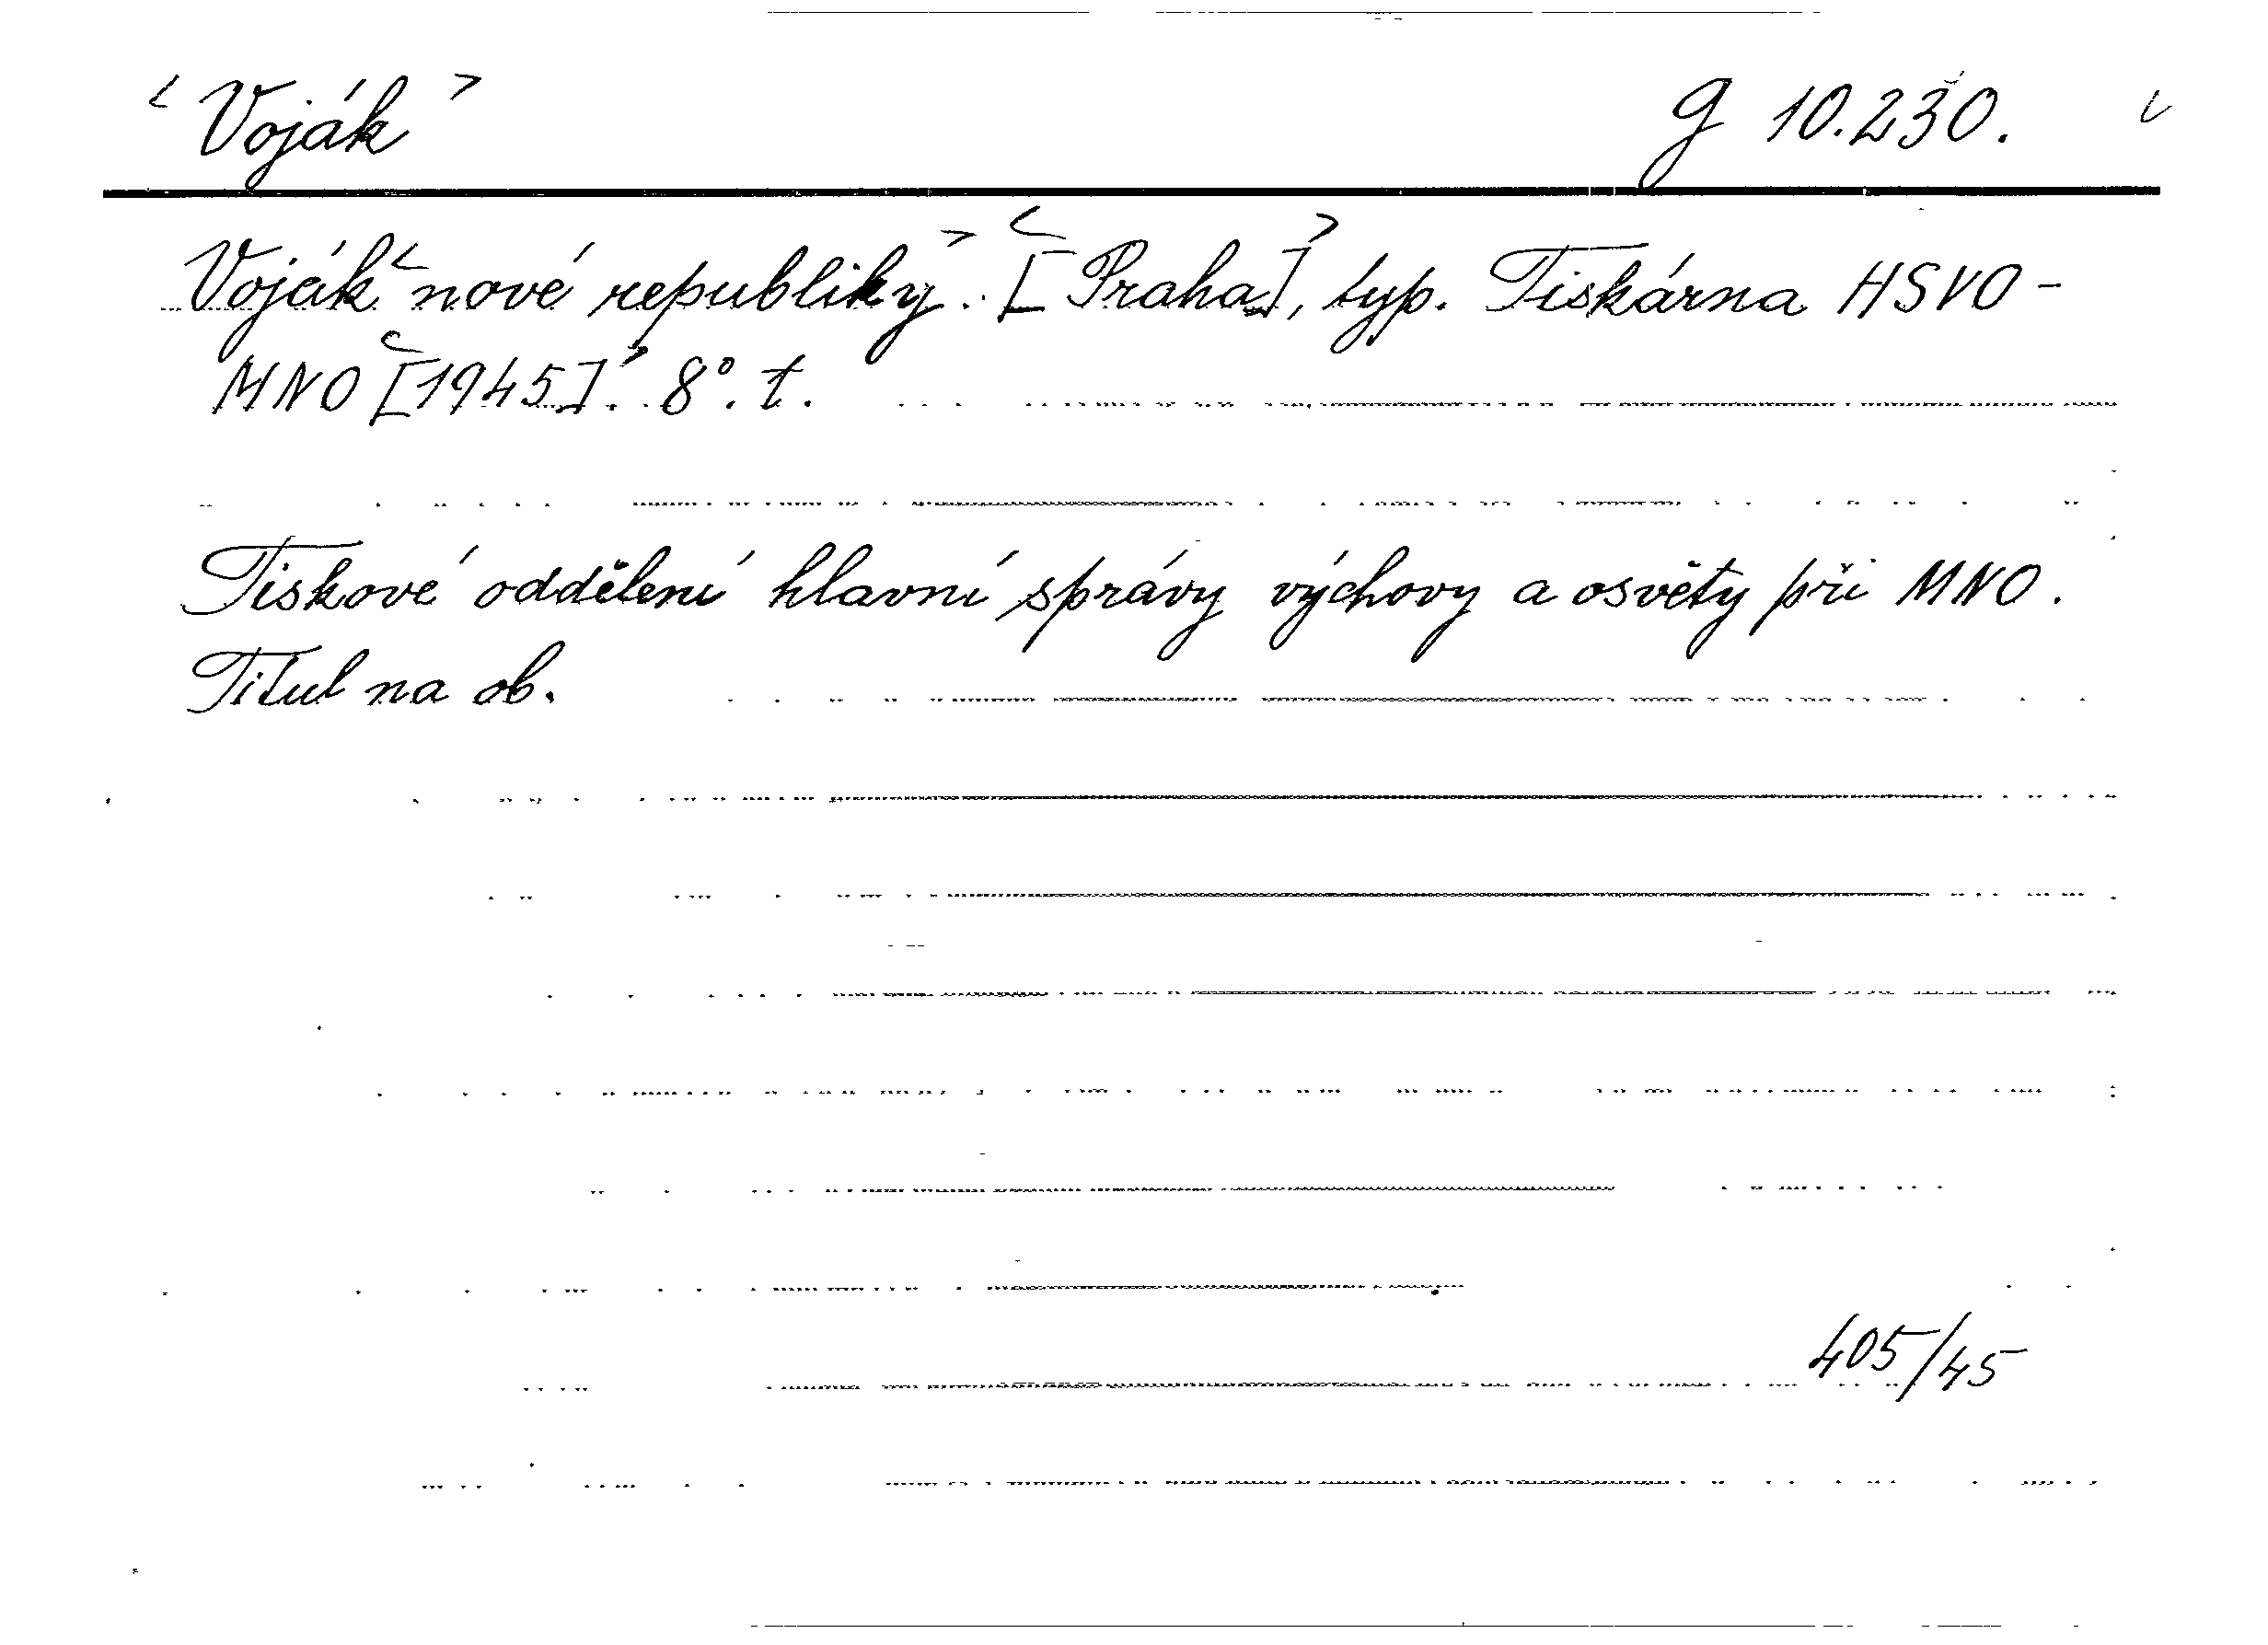 < Voják >
g 10.230.
Voják < nové republiky >. <[Praha]>, typ. Tiskárna HSVO-
MNO <[1945]>. 8°. t.
Tiskové oddělení hlavní správy výchovy a osvěty při MNO.
Titul na ob.
405/45